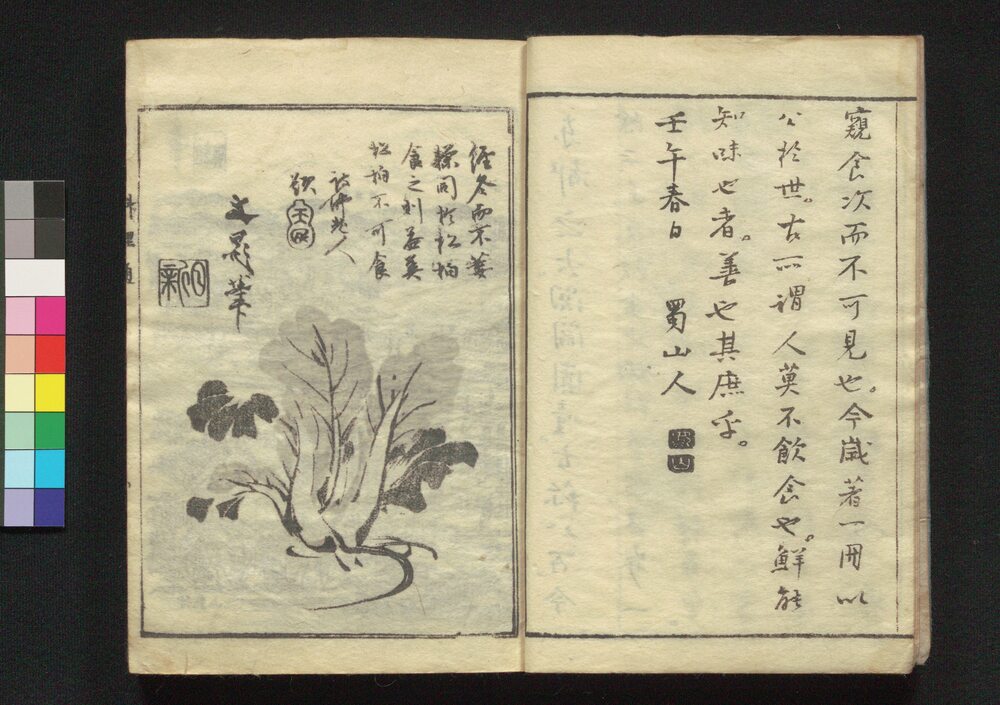 窺食次而不可見也。今歳著一冊以
公於世。古所謂人莫不飲食也。鮮能
知味也者。善也其庶乎。
壬午春日 蜀山人
經冬而不萎
操同於松栢
食之則益美
松栢不可食
詩佛老人
文晁筆
料理通